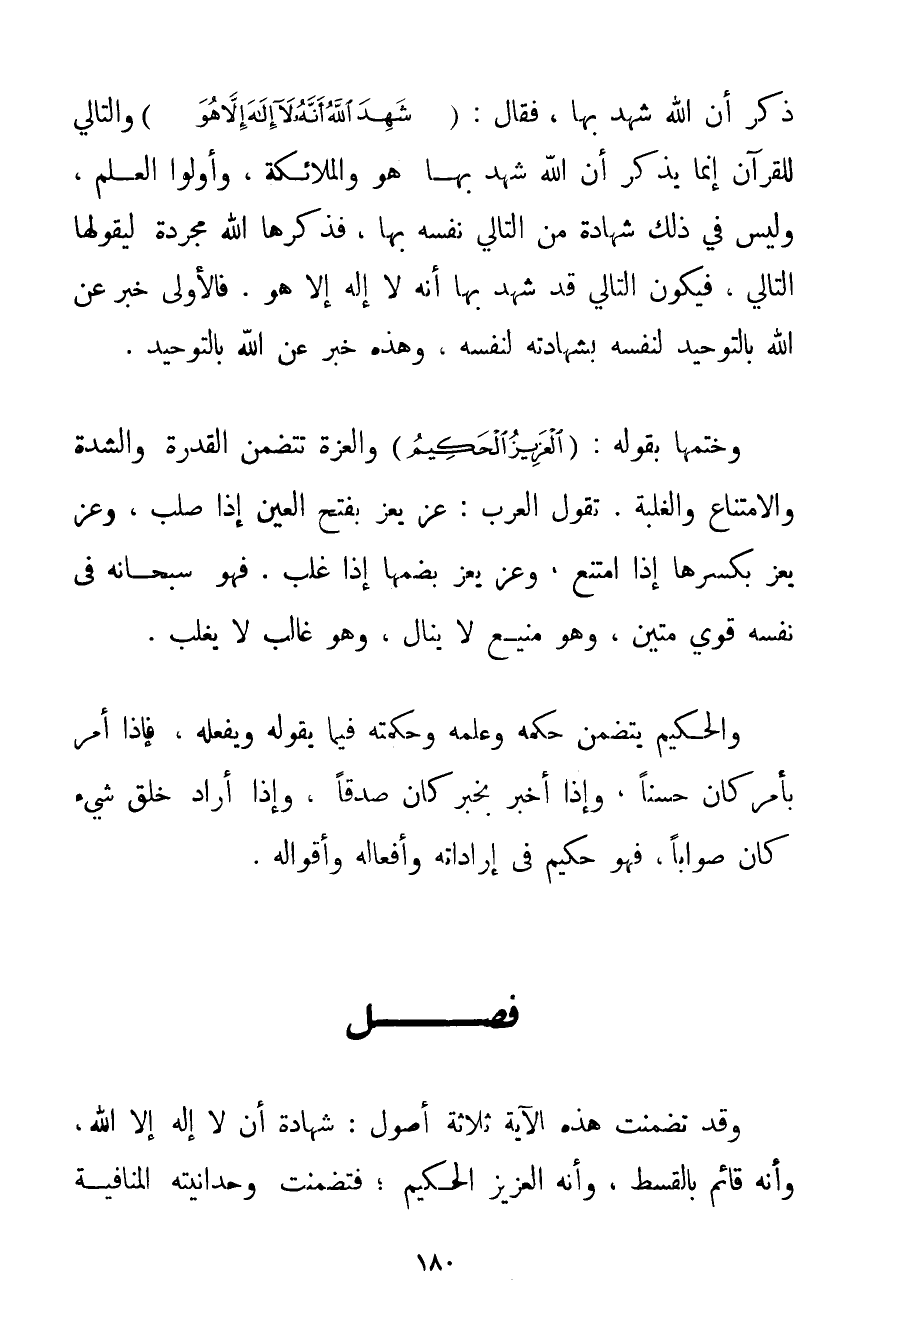 ذكر أن الله شهد بها ، فقال : ( شَهِدَ ٱللَّهُ أَنَّهُۥ لَآ إِلَٰهَ إِلَّا هُوَ ) والتالي
للقرآن إنما يذكر أن اللّه شهد بهـا هو والملائـكة ، وأولوا العـلم ،
وليس في ذلك شهادة من التالي نفسه بها ، فذكرها الله مجردة ليقولها
التالي ، فيكون التالي قد شهد بها أنه لا إله إلا هو . فالأولى خبر عن
الله بالتوحيد لنفسه بشهادته لنفسه ، وهذه خبر عن اللّه بالتوحيد .
وختمها بقوله : ( ٱلْعَزِيزُ ٱلْحَكِيمُ ) والعزة تتضمن القدرة والشدة
والامتناع والغلبة . تقول العرب : عز يعز بفتح العين إذا صلب ، وعز
يعز بكسرها إذا امتنع ، وعز يعز بضمها إذا غلب . فهو سبحـانه فى
نفسه قوي متين ، وهو منيـع لا ينال ، وهو غالب لا يغلب .
والحـكيم يتضمن حكمه وعلمه وحكمته فيما يقوله ويفعله ، فإذا أمر
بأمر كان حسناً ، وإذا أخبر بخبر كان صدقاً ، وإذا أراد خلق شيء
كان صواباً ، فهو حكيم فى إراداته وأفعاله وأقواله .
فصـــــل
وقد تضمنت هذه الآية ثلاثة أصول : شهادة أن لا إله إلا الله ،
وأنه قائم بالقسط ، وأنه العزيز الحـكيم ؛ فتضمنت وحدانيته المنافيـة
١٨٠